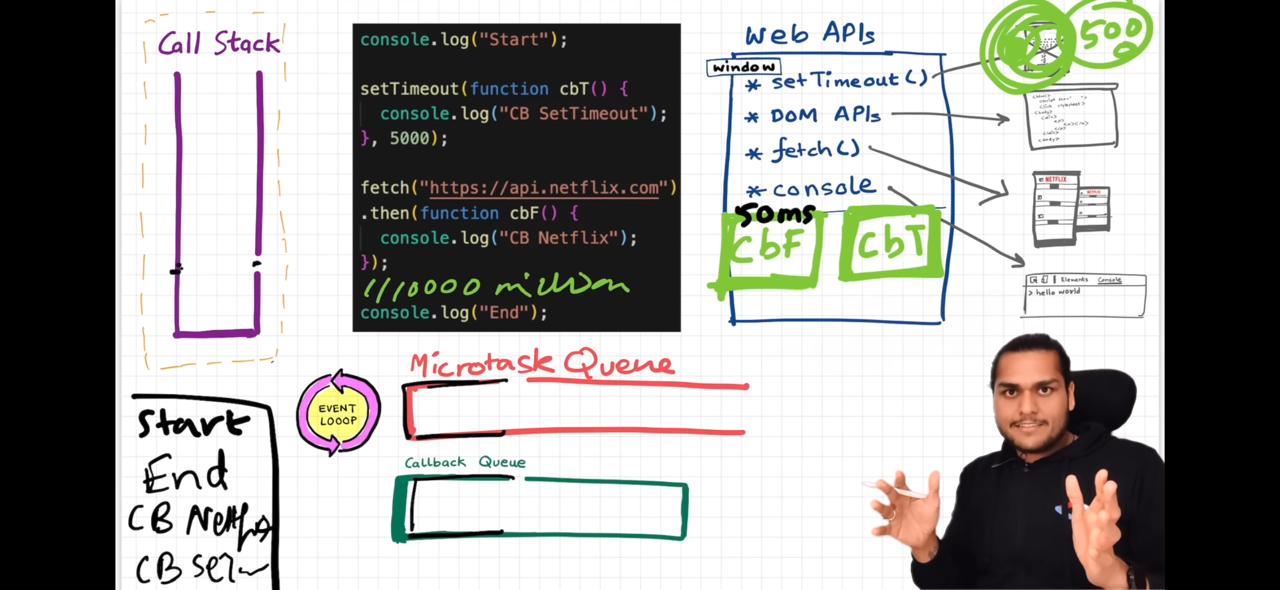 Call Stack
console.log("Start");
setTimeout(function cbT() {
console.log("CB SetTimeout");
}, 5000);
fetch("https://api.netflix.com")
.then(function cbF() {
console.log("CB Netflix");
});
million
console.log("End");
Web APIs
window
* setTimeout()
* DOM APIs
* fetch()
* console
50ms
CbF
CbT
500
NETFLIX
NETFLIX
Elements Console
> hello world
Microtask Queue
EVENT
LOOOP
Callback Queue
Start
End
CB
CB